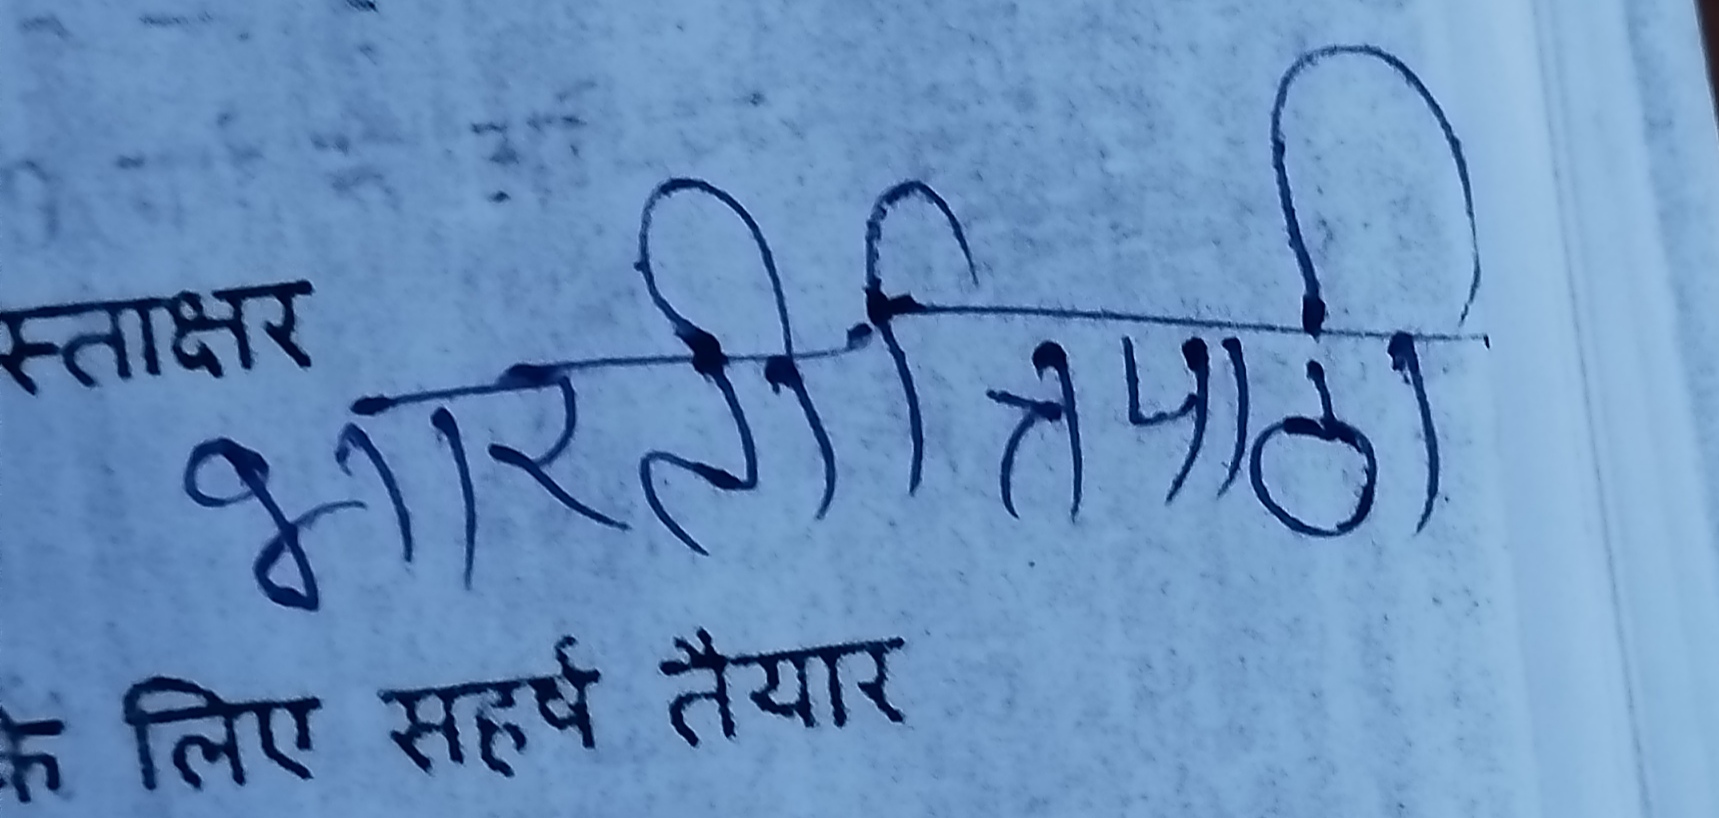 स्ताक्षर
भारती त्रिपाठी
के लिए सहर्ष तैयार